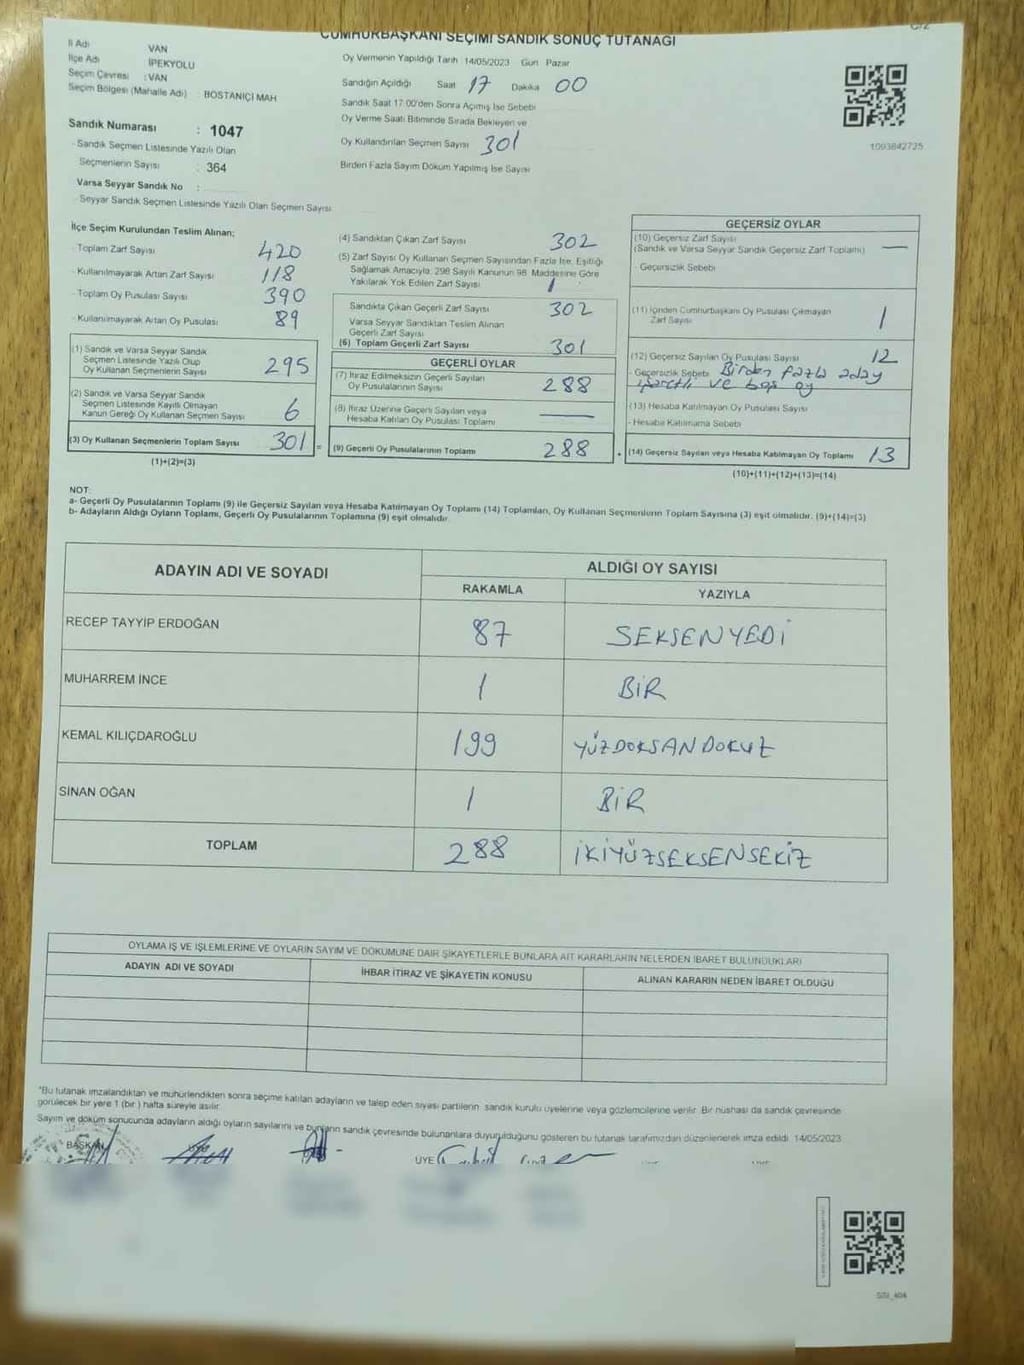 CUMHURBAŞKANI SEÇİMİ SANDIK SONUÇ TUTANAĞI
C/2
İl Adı VAN
İlçe Adı İPEKYOLU
Seçim Çevresi : VAN
Seçim Bölgesi (Mahalle Adı) : BOSTANİÇİ MAH
Sandık Numarası : 1047
- Sandık Seçmen Listesinde Yazılı Olan
Seçmenlerin Sayısı : 364
Varsa Seyyar Sandık No :
- Seyyar Sandık Seçmen Listesinde Yazılı Olan Seçmen Sayısı
Oy Vermenin Yapıldığı Tarih 14/05/2023 Gün Pazar
Sandığın Açıldığı Saat 17 Dakika 00
Sandık Saat 17:00'den Sonra Açımış İse Sebebi
Oy Verme Saati Bitiminde Sırada Bekleyen ve
Oy Kullandırılan Seçmen Sayısı 301
Birden Fazla Sayım Döküm Yapılmış İse Sayısı
1093842725
İlçe Seçim Kurulundan Teslim Alınan;
- Toplam Zarf Sayısı 420
- Kullanılmayarak Artan Zarf Sayısı 118
- Toplam Oy Pusulası Sayısı 390
- Kullanılmayarak Artan Oy Pusulası 89
(1) Sandık ve Varsa Seyyar Sandık
Seçmen Listesinde Yazılı Olup
Oy Kullanan Seçmenlerin Sayısı 295
(2) Sandık ve Varsa Seyyar Sandık
Seçmen Listesinde Kayıtlı Olmayan
Kanun Gereği Oy Kullanan Seçmen Sayısı 6
(3) Oy Kullanan Seçmenlerin Toplam Sayısı 301 =
(1)+(2)=(3)
(4) Sandıktan Çıkan Zarf Sayısı 302
(5) Zarf Sayısı Oy Kullanan Seçmen Sayısından Fazla İse, Eşitliği
Sağlamak Amacıyla; 298 Sayılı Kanunun 98. Maddesine Göre
Yakılarak Yok Edilen Zarf Sayısı 1
Sandıkta Çıkan Geçerli Zarf Sayısı 302
Varsa Seyyar Sandıktan Teslim Alınan
Geçerli Zarf Sayısı
(6) Toplam Geçerli Zarf Sayısı 301
GEÇERLİ OYLAR
(7) İtiraz Edilmeksizin Geçerli Sayılan
Oy Pusulalarının Sayısı 288
(8) İtiraz Üzerine Geçerli Sayılan veya
Hesaba Katılan Oy Pusulası Toplamı —
(9) Geçerli Oy Pusulalarının Toplamı 288 +
GEÇERSİZ OYLAR
(10) Geçersiz Zarf Sayısı
(Sandık ve Varsa Seyyar Sandık Geçersiz Zarf Toplamı) —
- Geçersizlik Sebebi
(11) İçinden Cumhurbaşkanı Oy Pusulası Çıkmayan
Zarf Sayısı 1
(12) Geçersiz Sayılan Oy Pusulası Sayısı 12
- Geçersizlik Sebebi Birden fazla aday
işaretli ve boş oy
(13) Hesaba Katılmayan Oy Pusulası Sayısı
- Hesaba Katılmama Sebebi
(14) Geçersiz Sayılan veya Hesaba Katılmayan Oy Toplamı 13
(10)+(11)+(12)+(13)=(14)
NOT:
a- Geçerli Oy Pusulalarının Toplamı (9) ile Geçersiz Sayılan veya Hesaba Katılmayan Oy Toplamı (14) Toplamları, Oy Kullanan Seçmenlerin Toplam Sayısına (3) eşit olmalıdır. (9)+(14)=(3)
b- Adayların Aldığı Oyların Toplamı, Geçerli Oy Pusulalarının Toplamına (9) eşit olmalıdır
ADAYIN ADI VE SOYADI ALDIĞI OY SAYISI
RAKAMLA YAZIYLA
RECEP TAYYİP ERDOĞAN 87 SEKSENYEDİ
MUHARREM İNCE 1 BİR
KEMAL KILIÇDAROĞLU 199 YÜZDOKSANDOKUZ
SİNAN OĞAN 1 BİR
TOPLAM 288 İKİYÜZSEKSENSEKİZ
OYLAMA İŞ VE İŞLEMLERİNE VE OYLARIN SAYIM VE DÖKÜMÜNE DAİR ŞİKAYETLERLE BUNLARA AİT KARARLARIN NELERDEN İBARET BULUNDUKLARI
ADAYIN ADI VE SOYADI İHBAR İTİRAZ VE ŞİKAYETİN KONUSU ALINAN KARARIN NEDEN İBARET OLDUĞU
*Bu tutanak imzalandıktan ve mühürlendikten sonra seçime katılan adayların ve talep eden siyasi partilerin sandık kurulu üyelerine veya gözlemcilerine verilir. Bir nüshası da sandık çevresinde
görülecek bir yere 1 (bir) hafta süreyle asılır.
Sayım ve döküm sonucunda adayların aldığı oyların sayılarını ve bunların sandık çevresinde bulunanlara duyurulduğunu gösteren bu tutanak tarafımızdan düzenlenerek imza edildi 14/05/2023
BAŞKAN ÜYE